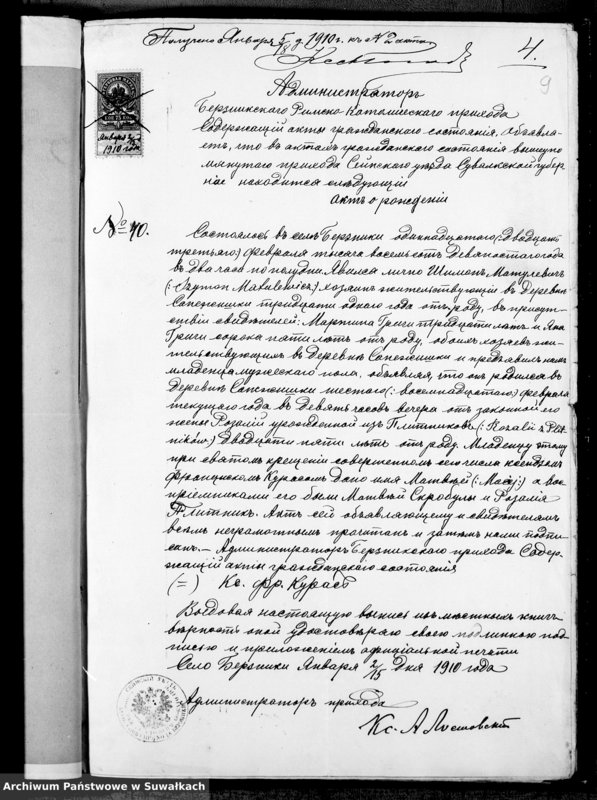 Получено Января 5/18 д. 1910 г. къ № 2 акта
4.
9
Администраторъ
Бержникского Римско-Католическаго прихода
Содержащій акты гражданскаго состоянія, объявля-
етъ, что въ актахъ гражданскаго состоянія вышеупо-
мянутаго прихода Сейнскаго уѣзда Сувалкской губер-
ніи находится слѣдующій
актъ о рожденіи
Января 2/15
1910 года
№ 70.
Состоялось въ селѣ Бержники одинадцатаго (: двадцать
третьяго:) февраля тысяча восемьсотъ Девяностаго года
въ два часа по полудни. Явился лично Шимонъ Матулевичъ
(: Szymon Matulewicz:) хозяинъ жительствующій въ деревнѣ
Сапежишки тридцати одного года отъ роду, въ присут-
ствіи свидѣтелей: Мартина Григи тридцати лѣтъ и Яна
Григи сорока пяти лѣтъ отъ роду, обоихъ хозяевъ жи-
тельствующихъ въ деревнѣ Сапежишки и предъявилъ намъ
младенца мужескаго пола, объявляя, что онъ родился въ
деревнѣ Сапежишки шестаго (: восемнадцатаго:) февраля
текущаго года въ девять часовъ вечера отъ законной его
жены Розаліи урожденной изъ Плитниковъ (: Rozalii z Plit-
ników:) двадцати пяти лѣтъ отъ роду. Младенцу этому
при святомъ крещеніи совершенномъ сего числа ксендзомъ
Францишкомъ Курасомъ дано имя Матвѣй (: Maciej:) а вос-
пріемниками его были Матвѣй Скробулъ и Розалія
Плитникъ. Актъ сей объявляющему и свидѣтелямъ
всѣмъ неграмотнымъ прочитанъ и затѣмъ нами подпи-
санъ. — Администраторъ Бержникскаго прихода Содер-
жащій акты гражданскаго состоянія
(=) Кс. Фр. Курасъ
Выдовая настоящую выпись изъ мѣстныхъ книгъ
вѣрность оной удостовѣряю своею подлинною под-
писью и приложеніемъ официальной печати
Село Бержники Января 2/15 дня 1910 года
Администраторъ прихода
Кс. А Лостовскій
Archiwum Państwowe w Suwałkach